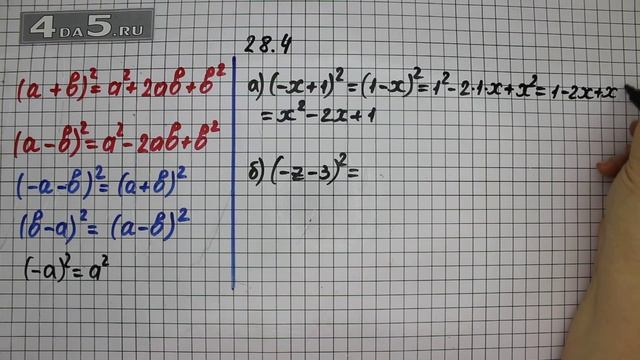 4ДА5.RU
28.4
(a+b)²=a²+2ab+b²
(a-b)²=a²-2ab+b²
(-a-b)²=(a+b)²
(b-a)²=(a-b)²
(-a)²=a²
а) (-x+1)²=(1-x)²=1²-2·1·x+x²=1-2x+x
=x²-2x+1
б) (-z-3)²=